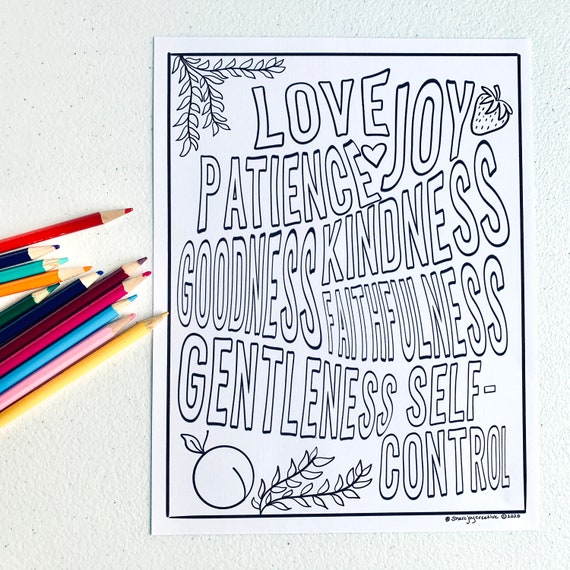 LOVE JOY
PATIENCE
KINDNESS
GOODNESS
FAITHFULNESS
GENTLENESS SELF-
CONTROL
@sharejoycreative ©2020